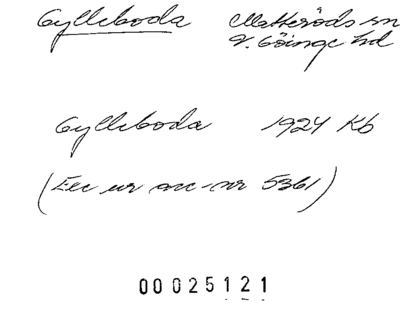 Gylleboda Matteröds sn
V. Göinge hd
Gylleboda 1924 Kb
(Exc ur acc-nr 5361)
00025121